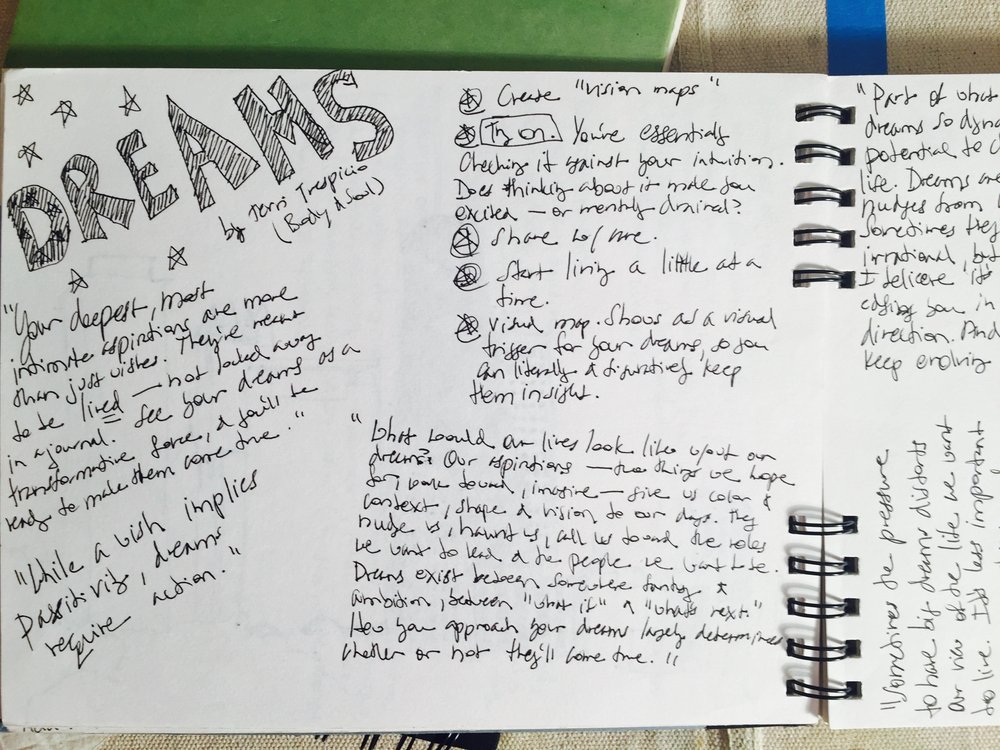 DREAMS
by Terri Trespicio
(Body & Soul)
"Your deepest, most
intimate aspirations are more
than just wishes. They're meant
to be lived — not locked away
in a journal. See your dreams as a
transformative force, & you'll be
ready to make them come true."
"While a wish implies
passitivity, dreams
require action."
Create "vision maps"
Try on. You're essentially
checking it against your intuition.
Does thinking about it make you
excited — or mentally drained?
Share w/ care.
Start living a little at a
time.
Visual map. Shows as a visual
trigger for your dreams, so you
can literally & figuratively keep
them insight.
"What would our lives look like w/out our
dreams? Our aspirations — the things we hope
for, work toward, imagine — give us color &
context, shape & vision to our days. They
nudge us, haunt us, call us toward the roles
we want to lead & the people we want to be.
Dreams exist between somewhere fantasy &
ambition, between "what if" & "what's next."
How you approach your dreams largely determines
whether or not they'll come true."
"Part of what
dreams so dyna
potential to c
life. Dreams are
nudges from
Sometimes they
irrational, but
I believe it's
edging you in
direction. And
keep evolving
"Sometimes the pressure
to have big dreams distorts
our view of the life we want
to live. It's less important